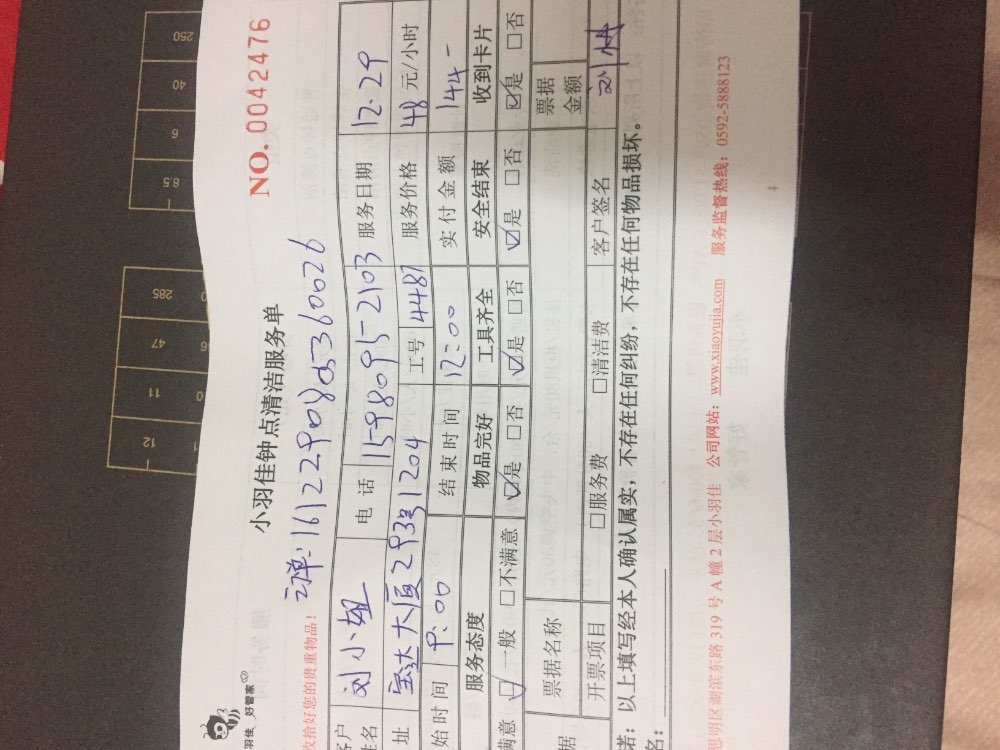 羽佳 好管家
小羽佳钟点清洁服务单
NO. 0042476
收拾好您的贵重物品!
161229080
客户姓名 刘小姐 电话 15980952103 服务日期 12.29
址 宝达大厦293号1204 工号 4487 服务价格 48 元/小时
始时间 9:00 结束时间 12:00 实付金额 144-
服务态度 物品完好 工具齐全 安全结束 收到卡片
满意 ☑一般 □不满意 ☑是 □否 ☑是 □否 ☑是 □否 ☑是 □否
据 票据名称 票据金额
开票项目 □服务费 □清洁费 客户签名
诺:以上填写经本人确认属实,不存在任何纠纷,不存在任何物品损坏。
名:
思明区湖滨东路 319 号 A 幢 2 层小羽佳 公司网站:www.xiaoyujia.com 服务监督热线:0592-5888123
250
40
6
8.5
285
47
11
12